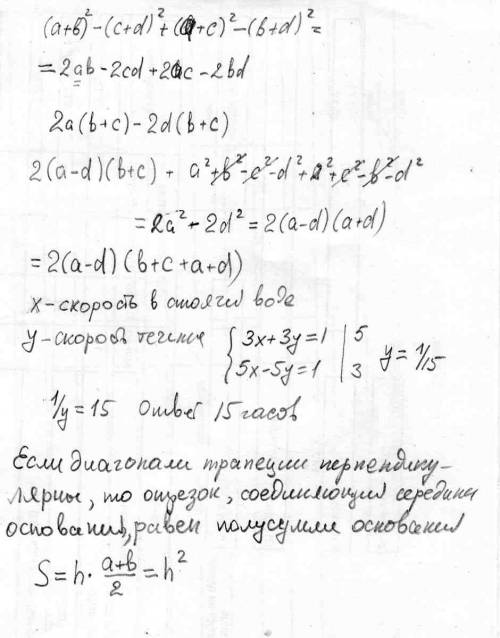 (a+b)²-(c+d)²+(a+c)²-(b+d)²=
=2ab-2cd+2ac-2bd
2a(b+c)-2d(b+c)
2(a-d)(b+c) + a²+b²-c²-d²+a²+c²-b²-d²
=2a²-2d²=2(a-d)(a+d)
=2(a-d)(b+c+a+d)
x-скорость в стоячей воде
y-скорость течения { 3x+3y=1 | 5
5x-5y=1 | 3 y=1/15
1/y=15 Ответ 15 часов
Если диагонали трапеции перпендику-
лярны, то отрезок, соединяющий середины
оснований, равен полусумме оснований
S=h·(a+b)/2=h²